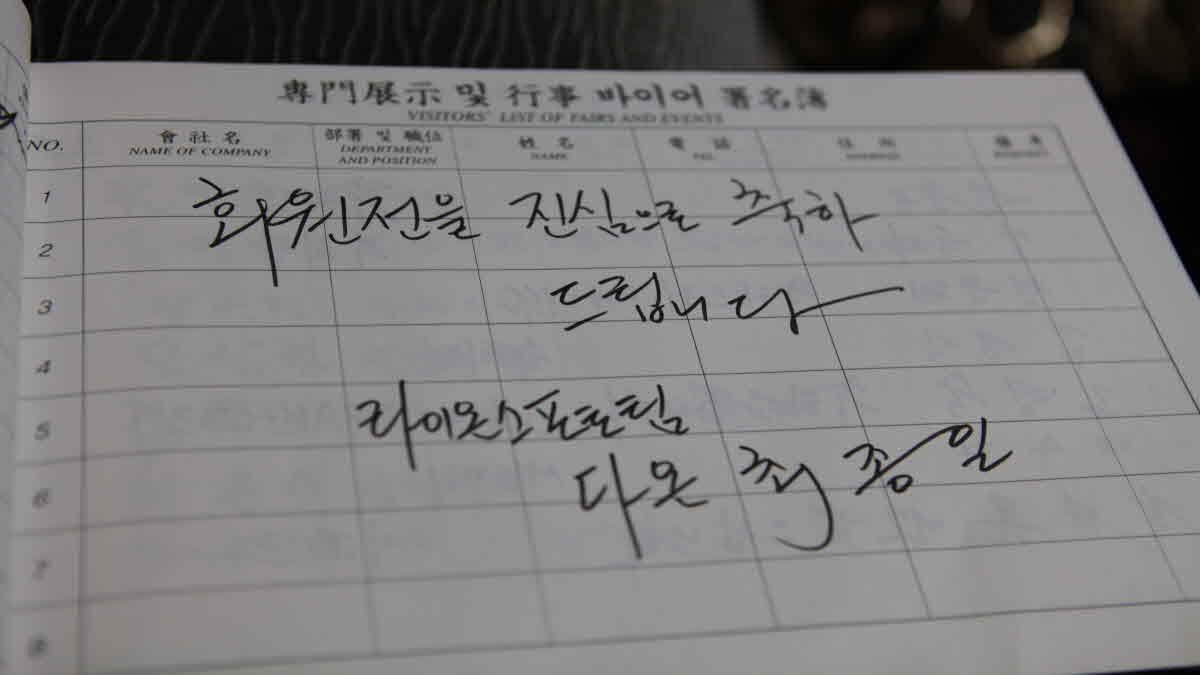 專門展示 및 行事 바이어 署名簿
VISITORS' LIST OF FAIRS AND EVENTS
NO. 會社名 部署 및 職位 姓名 電話 住所 備考
NAME OF COMPANY DEPARTMENT AND POSITION NAME TEL ADDRESS REMARKS
1
화원전을 진심으로 축하
2
3
드립니다
4
5
라이온스포토팀
6
다온 최종일
7
8